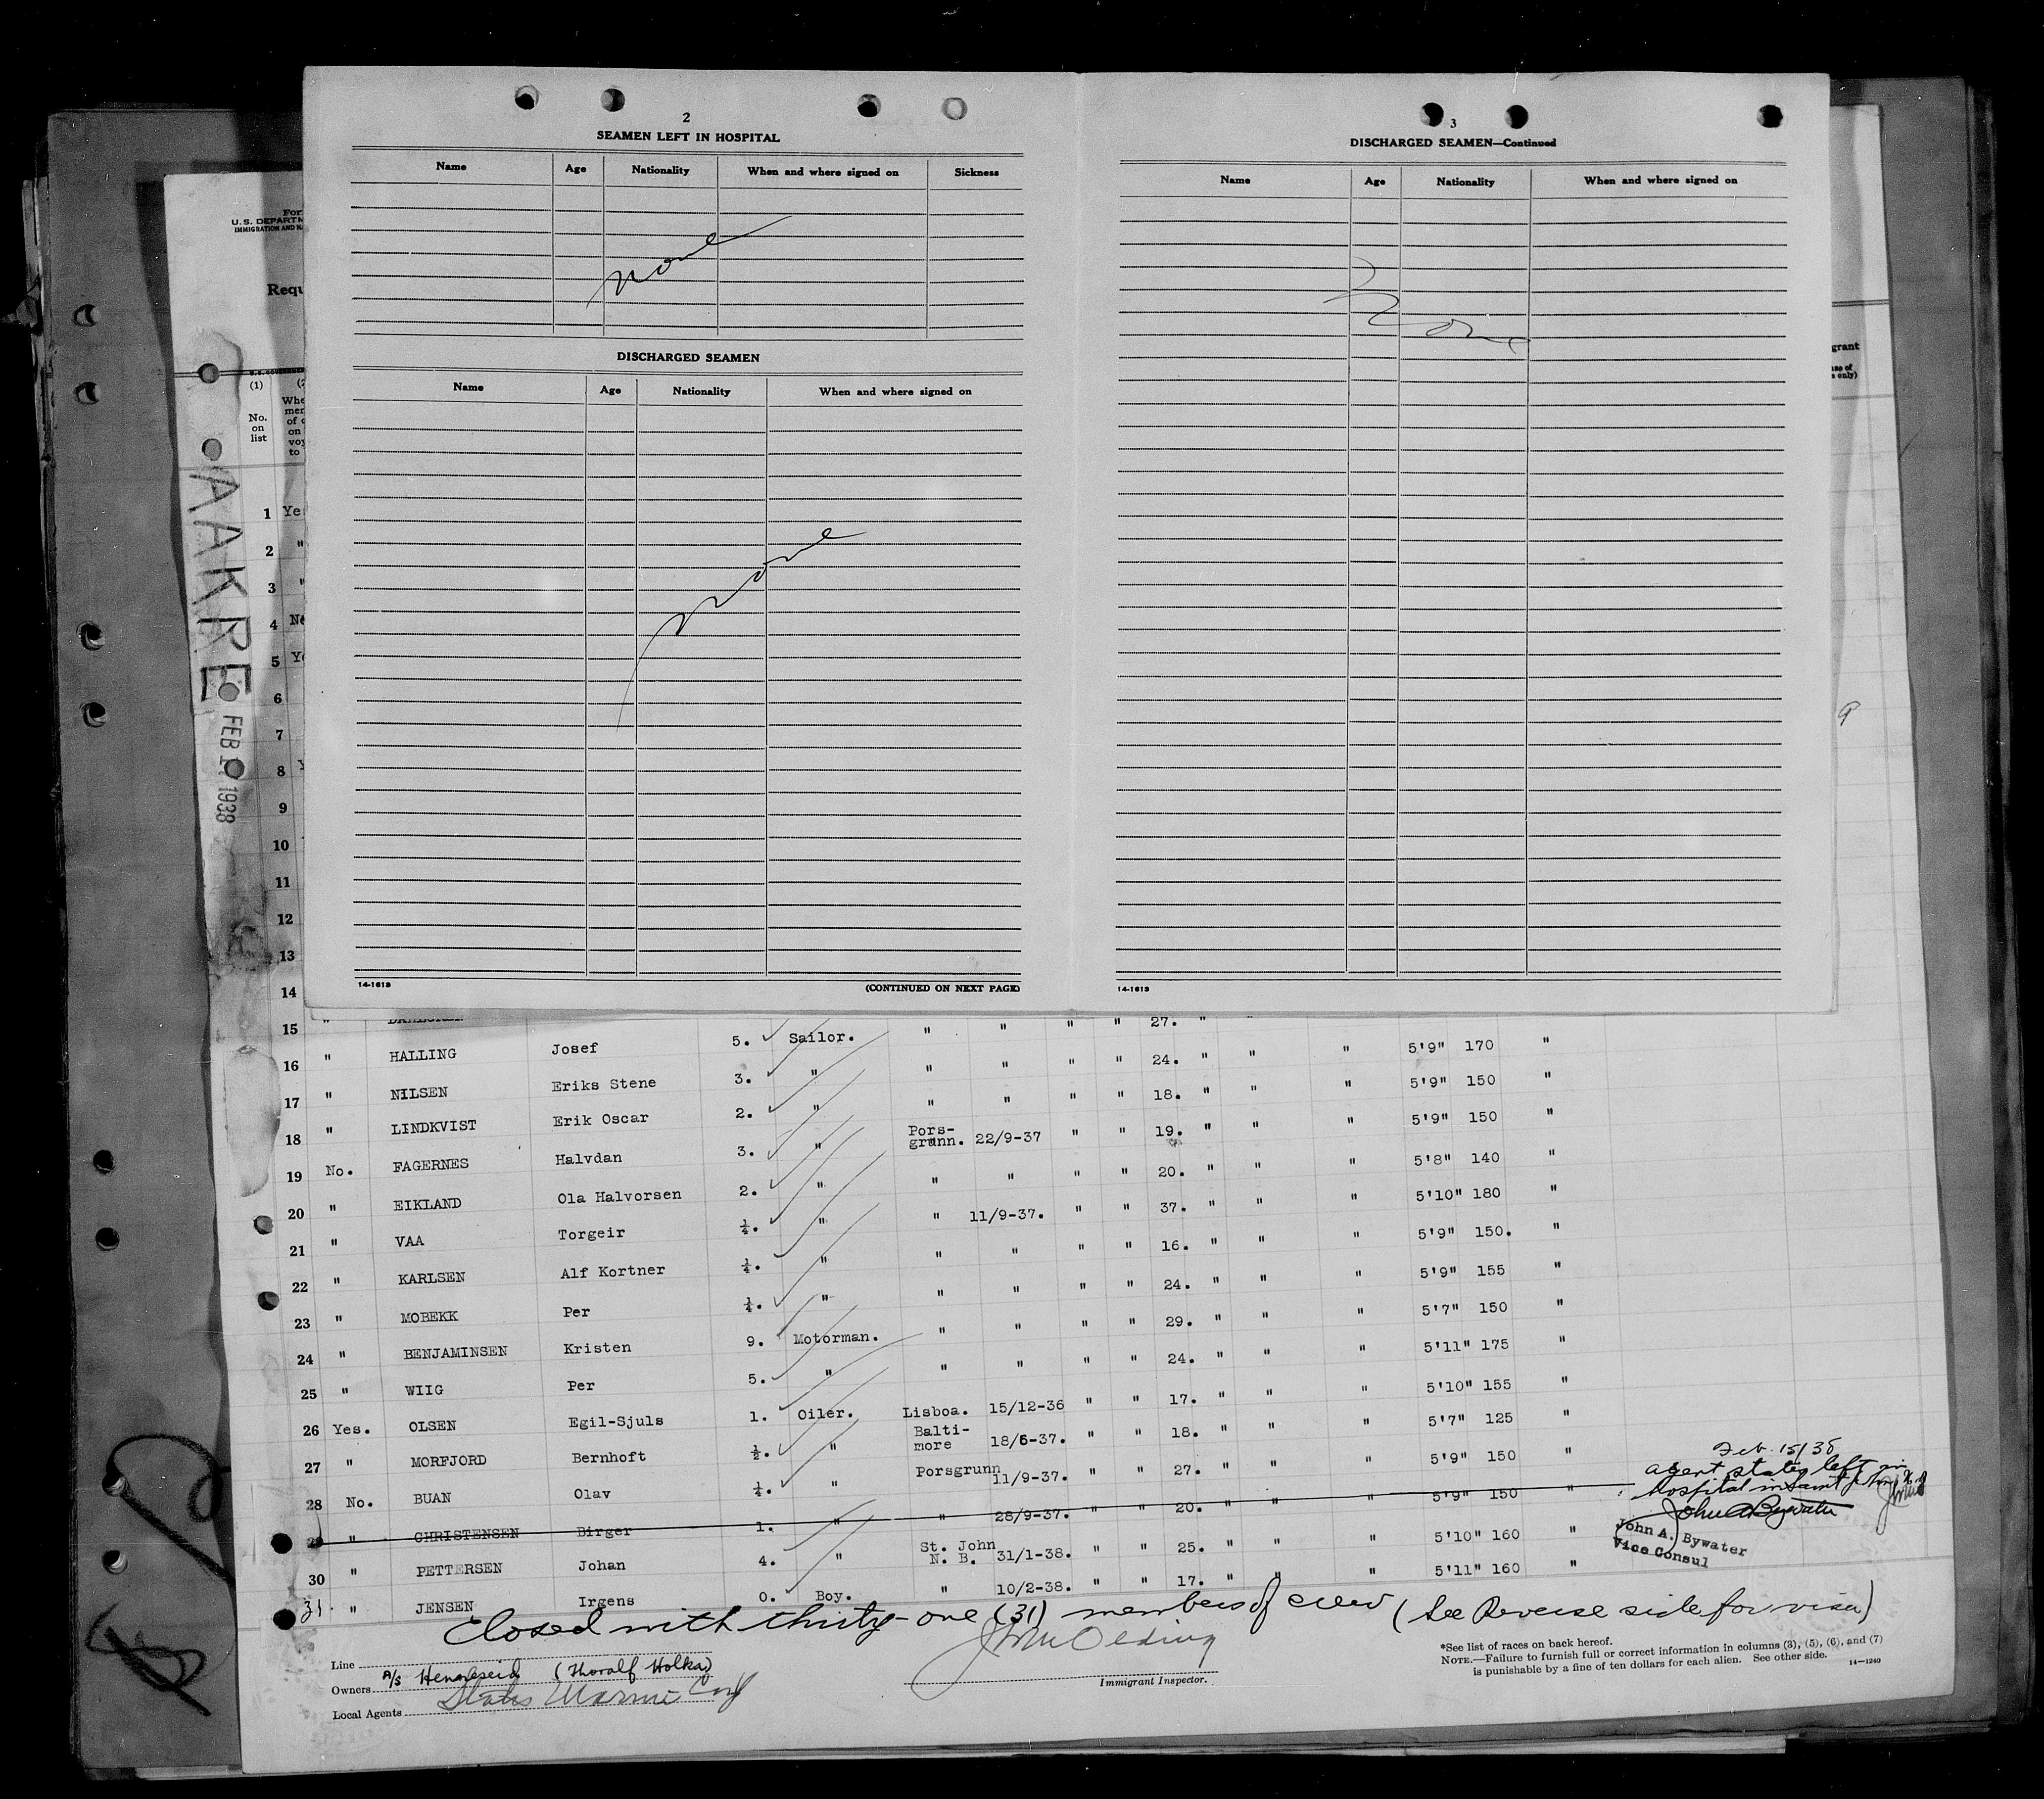 2
SEAMEN LEFT IN HOSPITAL
Name Age Nationality When and where signed on Sickness
None
DISCHARGED SEAMEN
Name Age Nationality When and where signed on
None
14-1613 (CONTINUED ON NEXT PAGE)
3
DISCHARGED SEAMEN—Continued
Name Age Nationality When and where signed on
None
14-1613
For
U. S. DEPARTM
IMMIGRATION AND NA
Requ
(1)
No.
on
list
Whe
mem
of c
on
voy
to
grant
use of
s only)
AAKRE
FEB 1938
1 Ye
2 "
3 "
4 No
5 Ye
6
7
8 Y
9
10
11
12
13
14
15 " 27. " "
16 " HALLING Josef 5. Sailor. " " " " 24. " " " 5'9" 170 "
17 " NILSEN Eriks Stene 3. " " " " " 18. " " " 5'9" 150 "
18 " LINDKVIST Erik Oscar 2. " Pors-grunn. 22/9-37 " " 19. " " " 5'9" 150 "
19 No. FAGERNES Halvdan 3. " " " " " 20. " " " 5'8" 140 "
20 " EIKLAND Ola Halvorsen 2. " " 11/9-37. " " 37. " " " 5'10" 180 "
21 " VAA Torgeir ¼. " " " " " 16. " " " 5'9" 150. "
22 " KARLSEN Alf Kortner ¼. " " " " " 24. " " " 5'9" 155 "
23 " MOBEKK Per ¼. " " " " " 29. " " " 5'7" 150 "
24 " BENJAMINSEN Kristen 9. Motorman. " " " " 24. " " " 5'11" 175 "
25 " WIIG Per 5. " Lisboa. 15/12-36 " " 17. " " " 5'10" 155 "
26 Yes. OLSEN Egil-Sjuls 1. Oiler. Balti-more 18/6-37. " " 18. " " " 5'7" 125 "
27 " MORFJORD Bernhoft ½. " Porsgrunn 11/9-37. " " 27. " " " 5'9" 150 "
28 No. BUAN Olav ¼. " " 28/9-37. " " 20. " " " 5'9" 150 "
29 " CHRISTENSEN Birger 1. "
30 " PETTERSEN Johan 4. " St. John N. B. 31/1-38. " " 25. " " " 5'10" 160 "
31. " JENSEN Irgens 0. Boy. " 10/2-38. " " 17. " " " 5'11" 160 "
Feb. 15/38
agent states left in
hospital in Saint John N.B.
John A Bywater
John A. Bywater
Vice Consul
Closed with thirty-one (31) members of crew (See Reverse side for visa)
Line
Owners A/S Henneseid (Thoralf Holta)
Local Agents States Marine Corp
Immigrant Inspector.
*See list of races on back hereof.
NOTE.—Failure to furnish full or correct information in columns (3), (5), (6), and (7)
is punishable by a fine of ten dollars for each alien. See other side. 14—1240